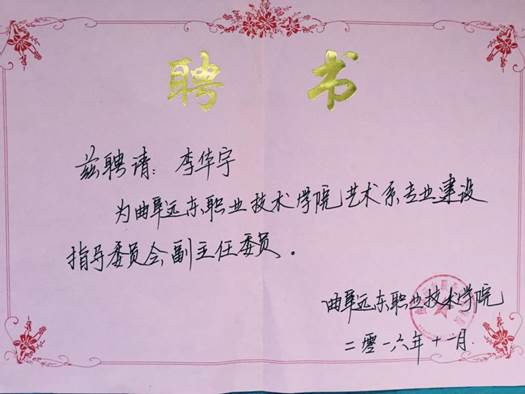 聘书
兹聘请：李华宇
为曲阜远东职业技术学院艺术系专业建设
指导委员会副主任委员.
曲阜远东职业技术学院
二零一六年十一月.